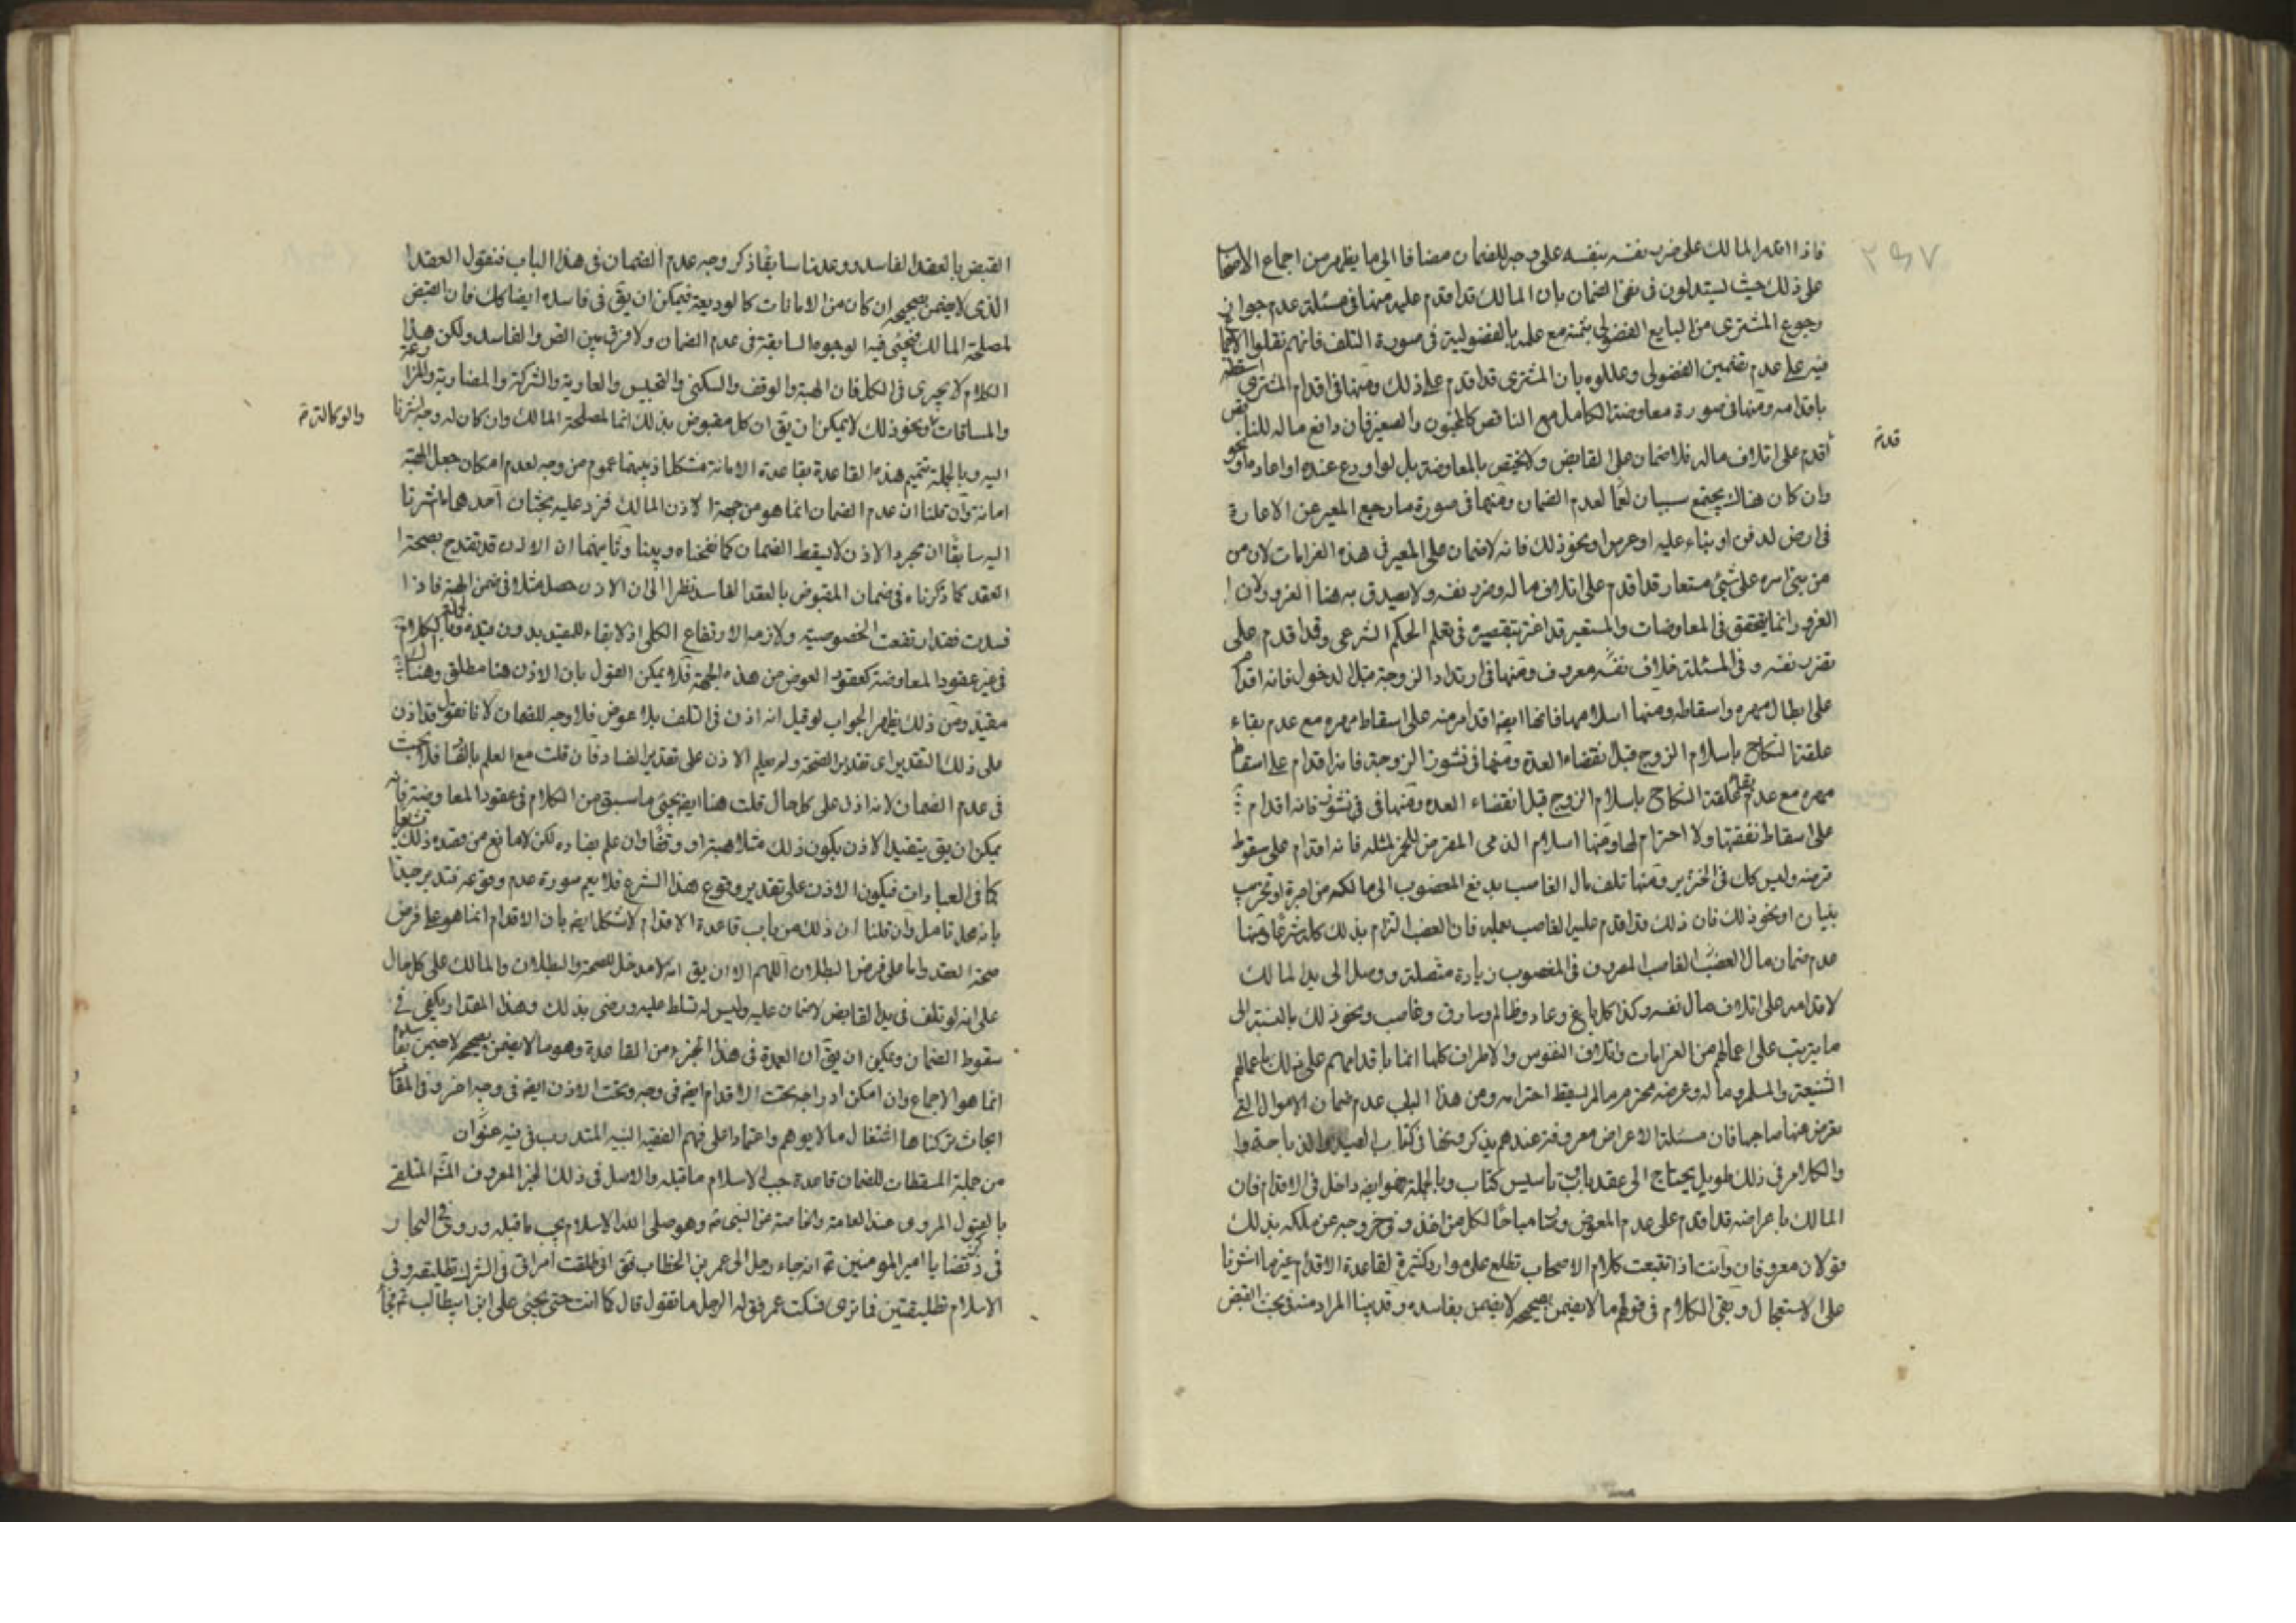 فاذا اقدم المالك على ضرب نفسه بنفسه على وجه للضمان مضافا الى ما يظهر من اجماع الاصحاب
على ذلك حيث يستدلون فى نفى الضمان بان المالك قد اقدم عليه منها فى مسئلة عدم جواز
رجوع المشترى من البايع الفضولى بثمنه مع علمه بالفضولية فى صورة التلف فانهم نقلوا الاجماع
فيه على عدم تضمين الفضولى وعللوه بان المشترى قد اقدم على ذلك ومنها فى اقدام المشترى
باقدامه ومنها فى صورة معاوضة الكامل مع الناقص كالمجنون والصغير فان دافع ماله للناقص
قد
أقدم على اتلاف ماله فلا ضمان على القابض ولا يختص بالمعاوضة بل لو اودع عنده او اعاره او نحو
وان كان هناك يجتمع سببان لعدم الضمان ومنها فى صورة ما رجع المعير عن الاعارة
فى ارض لدفن او بناء عليه او غرس او نحو ذلك فانه لا ضمان على المعير فى هذه الغرامات لان من
من بنى امره على شيئ مستعار قد اقدم على اتلاف ماله وضرب نفسه ولا يصدق به هنا الغرور لان
الغرور انما يتحقق فى المعاوضات والمستعير قد اغتر بتقصيره فى تعلم الحكم الشرعى وقد اقدم على
بضرب نفسه وفى المسئلة خلاف معروف ومنها فى ارتداد الزوجة قبل الدخول فانه اقدام
على ابطال مهره واسقاطه ومنها اسلامها فانها ايضا اقدام منه على اسقاط مهره مع عدم بقاء
علقة النكاح باسلام الزوج قبل انقضاء العدة ومنها فى نشوز الزوجة فانه اقدام على اسقاط
مهره مع عدم بقاء علقة النكاح باسلام الزوج قبل انقضاء العده ومنها فى نشوز فانه اقدام
على اسقاط نفقتها ولا احترام لها ومنها اسلام الذمى المقرض للخمر لمثله فانه اقدام على سقوط
قرضه وليس كك فى الخنزير ومنها تلف مال الغاصب بدفع المغصوب الى مالكه من اجرة او تخريب
بنيان او نحو ذلك فان ذلك قد اقدم عليه الغاصب بعلمه فان الغصب التزام بذلك كله شرعا ومنها
عدم ضمان مال الغاصب المصروف فى المغصوب زيادة متصلة ووصل الى يد المالك
لاقدامه على اتلاف مال نفسه وكذا كل باغ وعاد وظالم وسارق وغاصب ونحو ذلك بالنسبة الى
ما يترتب على اعمالهم من الغرامات واتلاف النفوس والاطراف كلها انما باقدامهم على ذلك باعمالهم
الشنيعة والمسلم وماله وعرضه محترم ما لم يسقط احترامه ومن هذا الباب عدم ضمان الاموال التى
يعرض عنها صاحبها فان مسئلة الاعراض معروفة عندهم يذكرونها فى كتاب الصيد والذباحة
والكلام فى ذلك طويل يحتاج الى عقد باب وتأسيس كتاب وبالجملة فهو ايضا داخل فى الاقدام فان
المالك باعراضه قد اقدم على عدم العوض وصار مباحا لكل من اخذ وفى خروجه عن ملكه بذلك
قولان معروفان وانت اذا تتبعت كلام الاصحاب تطلع على موارد كثيرة لقاعدة الاقدام غير ما اشرنا
على الاستعجال وبقى الكلام فى قولهم ما لا يضمن بصحيحه لا يضمن بفاسده وقد بينا المراد منه فى بحث القبض
القبض بالعقد الفاسد ووعدنا سابقا ذكر وجه عدم الضمان فى هذا الباب فنقول العقد
الذى لا يضمن بصحيحه ان كان من الامانات كالوديعة فيمكن ان يق فى فاسده ايضا كك فان القبض
لمصلحة المالك فيجئى فيه الوجوه السابقة فى عدم الضمان ولا فرق بين الصحيح والفاسد ولكن هذا
الكلام لا يجرى فى الكل فان الهبة والوقف والسكنى والتحبيس والعارية والشركة والمضاربة والمزارعة
والوكالة
والمساقات ونحو ذلك لا يمكن ان يق ان كل مقبوض بذلك انما لمصلحة المالك وان كان له وجه اشرنا
اليه وبالجملة تتميم هذه القاعدة بقاعدة الامانة مشكل اذ بينهما عموم من وجه لعدم امكان جعل الهبة
امانة وان قلنا ان عدم الضمان انما هو من جهة الاذن المالك فيرد عليه بحثان احدهما ما اشرنا
اليه سابقا ان مجرد الاذن لا يسقط الضمان كما نقحناه وبينا وثانيهما ان الاذن قد تقيد بصحة
العقد كما ذكرناه فى ضمان المقبوض بالعقد الفاسد نظرا الى ان الاذن حصل مثلا فى ضمن الهبة فاذا
فسدت فقد ارتفعت الخصوصية ولازمه الارتفاع الكلى اذ لا بقاء للمقيد بدون قيده
فى غير عقود المعاوضة كعقود العوض من هذه الجهة فلا يمكن القول بان الاذن هنا مطلق وهناك
مقيد ومن ذلك يظهر الجواب لو قيل انه اذن فى التلف بلا عوض فلا وجه للضمان لانا نقول قد اذن
على ذلك التقدير اى تقدير الصحة ولم يعلم الاذن على تقدير الفساد فان قلت مع العلم بالفساد فلا بحث
فى عدم الضمان لانه اذن على كل حال قلت هنا ايضا يجئى ما سبق من الكلام فى عقود المعاوضة فانه
يمكن ان يق بتقييد الاذن بكون ذلك مثلا هبة او وقفا وان علم بفساده لكن لا مانع من قصده ذلك تشريعا
كما فى العبادات فيكون الاذن على تقدير وقوع هذا الشرع فلا يعم صورة عدم وقوعه فتدبر جيدا
فانه محل تامل وان قلنا ان ذلك من باب قاعدة الاقدام لاشكل ايضا بان الاقدام انما هو على فرض
صحة العقد واما على فرض البطلان اللهم الا ان يق انه لا مدخل للصحة والبطلان والمالك على كل حال
على انه لو تلف فى يد القابض لا ضمان عليه وليس له تسلط عليه ورضى بذلك وهذا المقدار يكفى فى
سقوط الضمان ويمكن ان يق ان العمدة فى هذا الجزء من القاعدة وهو ما لا يضمن بصحيحه لا يضمن بفاسده
انما هو الاجماع وان امكن ادراجه تحت الاقدام ايضا فى وجه وتحت الاذن ايضا فى وجه اخر وفى المقام
ابحاث تركناها اشتغال ما لا يوهم واعتمادا على فهم الفقيه النبيه المتدرب فى فنه عنوان
من جملة المسقطات للضمان قاعدة جب الاسلام ما قبله والاصل فى ذلك الخبر المعروف المتلقى
بالقبول المروى عند العامة والخاصة عن النبى ص وهو صلى الله الاسلام يجب ما قبله وروى فى البحار
فى ذكر قضايا امير المؤمنين ع انه جاء رجل الى عمر بن الخطاب فقال انى طلقت امراتى فى الشرك تطليقة وفى
الاسلام تطليقتين فما ترى فسكت عمر فق له الرجل ما تقول قال كما انت حتى يجئى على ابن ابيطالب ع فجاء